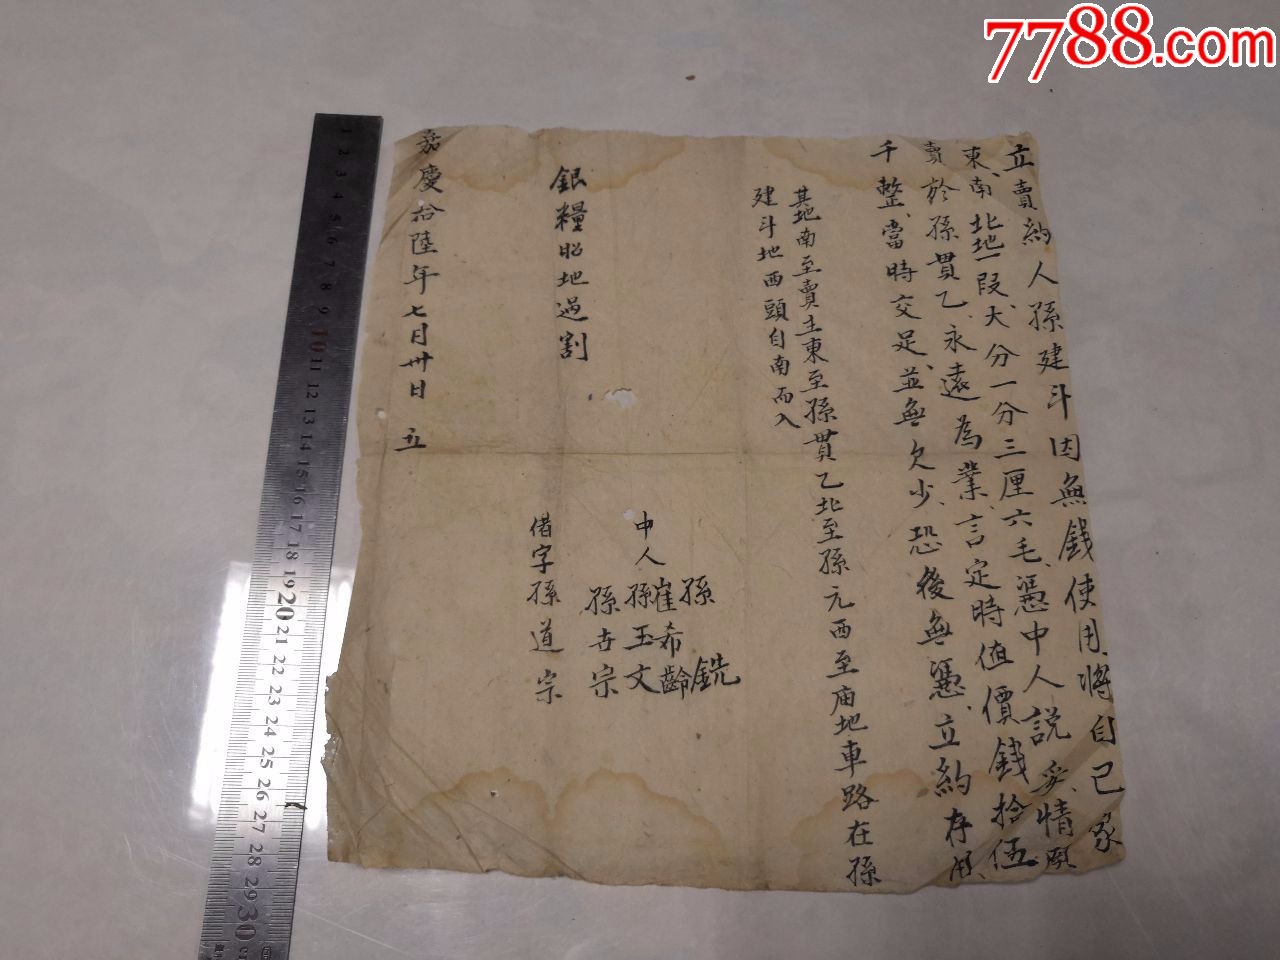 7788.com
立賣約人孫建斗因無錢使用將自己家
東南北地一段大分一分三厘六毛憑中人說妥情願
賣於孫貫乙永遠為業言定時值價錢拾伍
千整當時交足並無欠少恐後無憑立約存用
其地南至賣主東至孫貫乙北至孫元西至庙地車路在孫
建斗地西頭自南而入
孫銑
崔希齡
中人孫玉文
孫世宗
銀糧昭地過割
偖字孫道宗
嘉慶拾陸年七月卅日 立
1 2 3 4 5 6 7 8 9 10 11 12 13 14 15 16 17 18 19 20 21 22 23 24 25 26 27 28 29 30